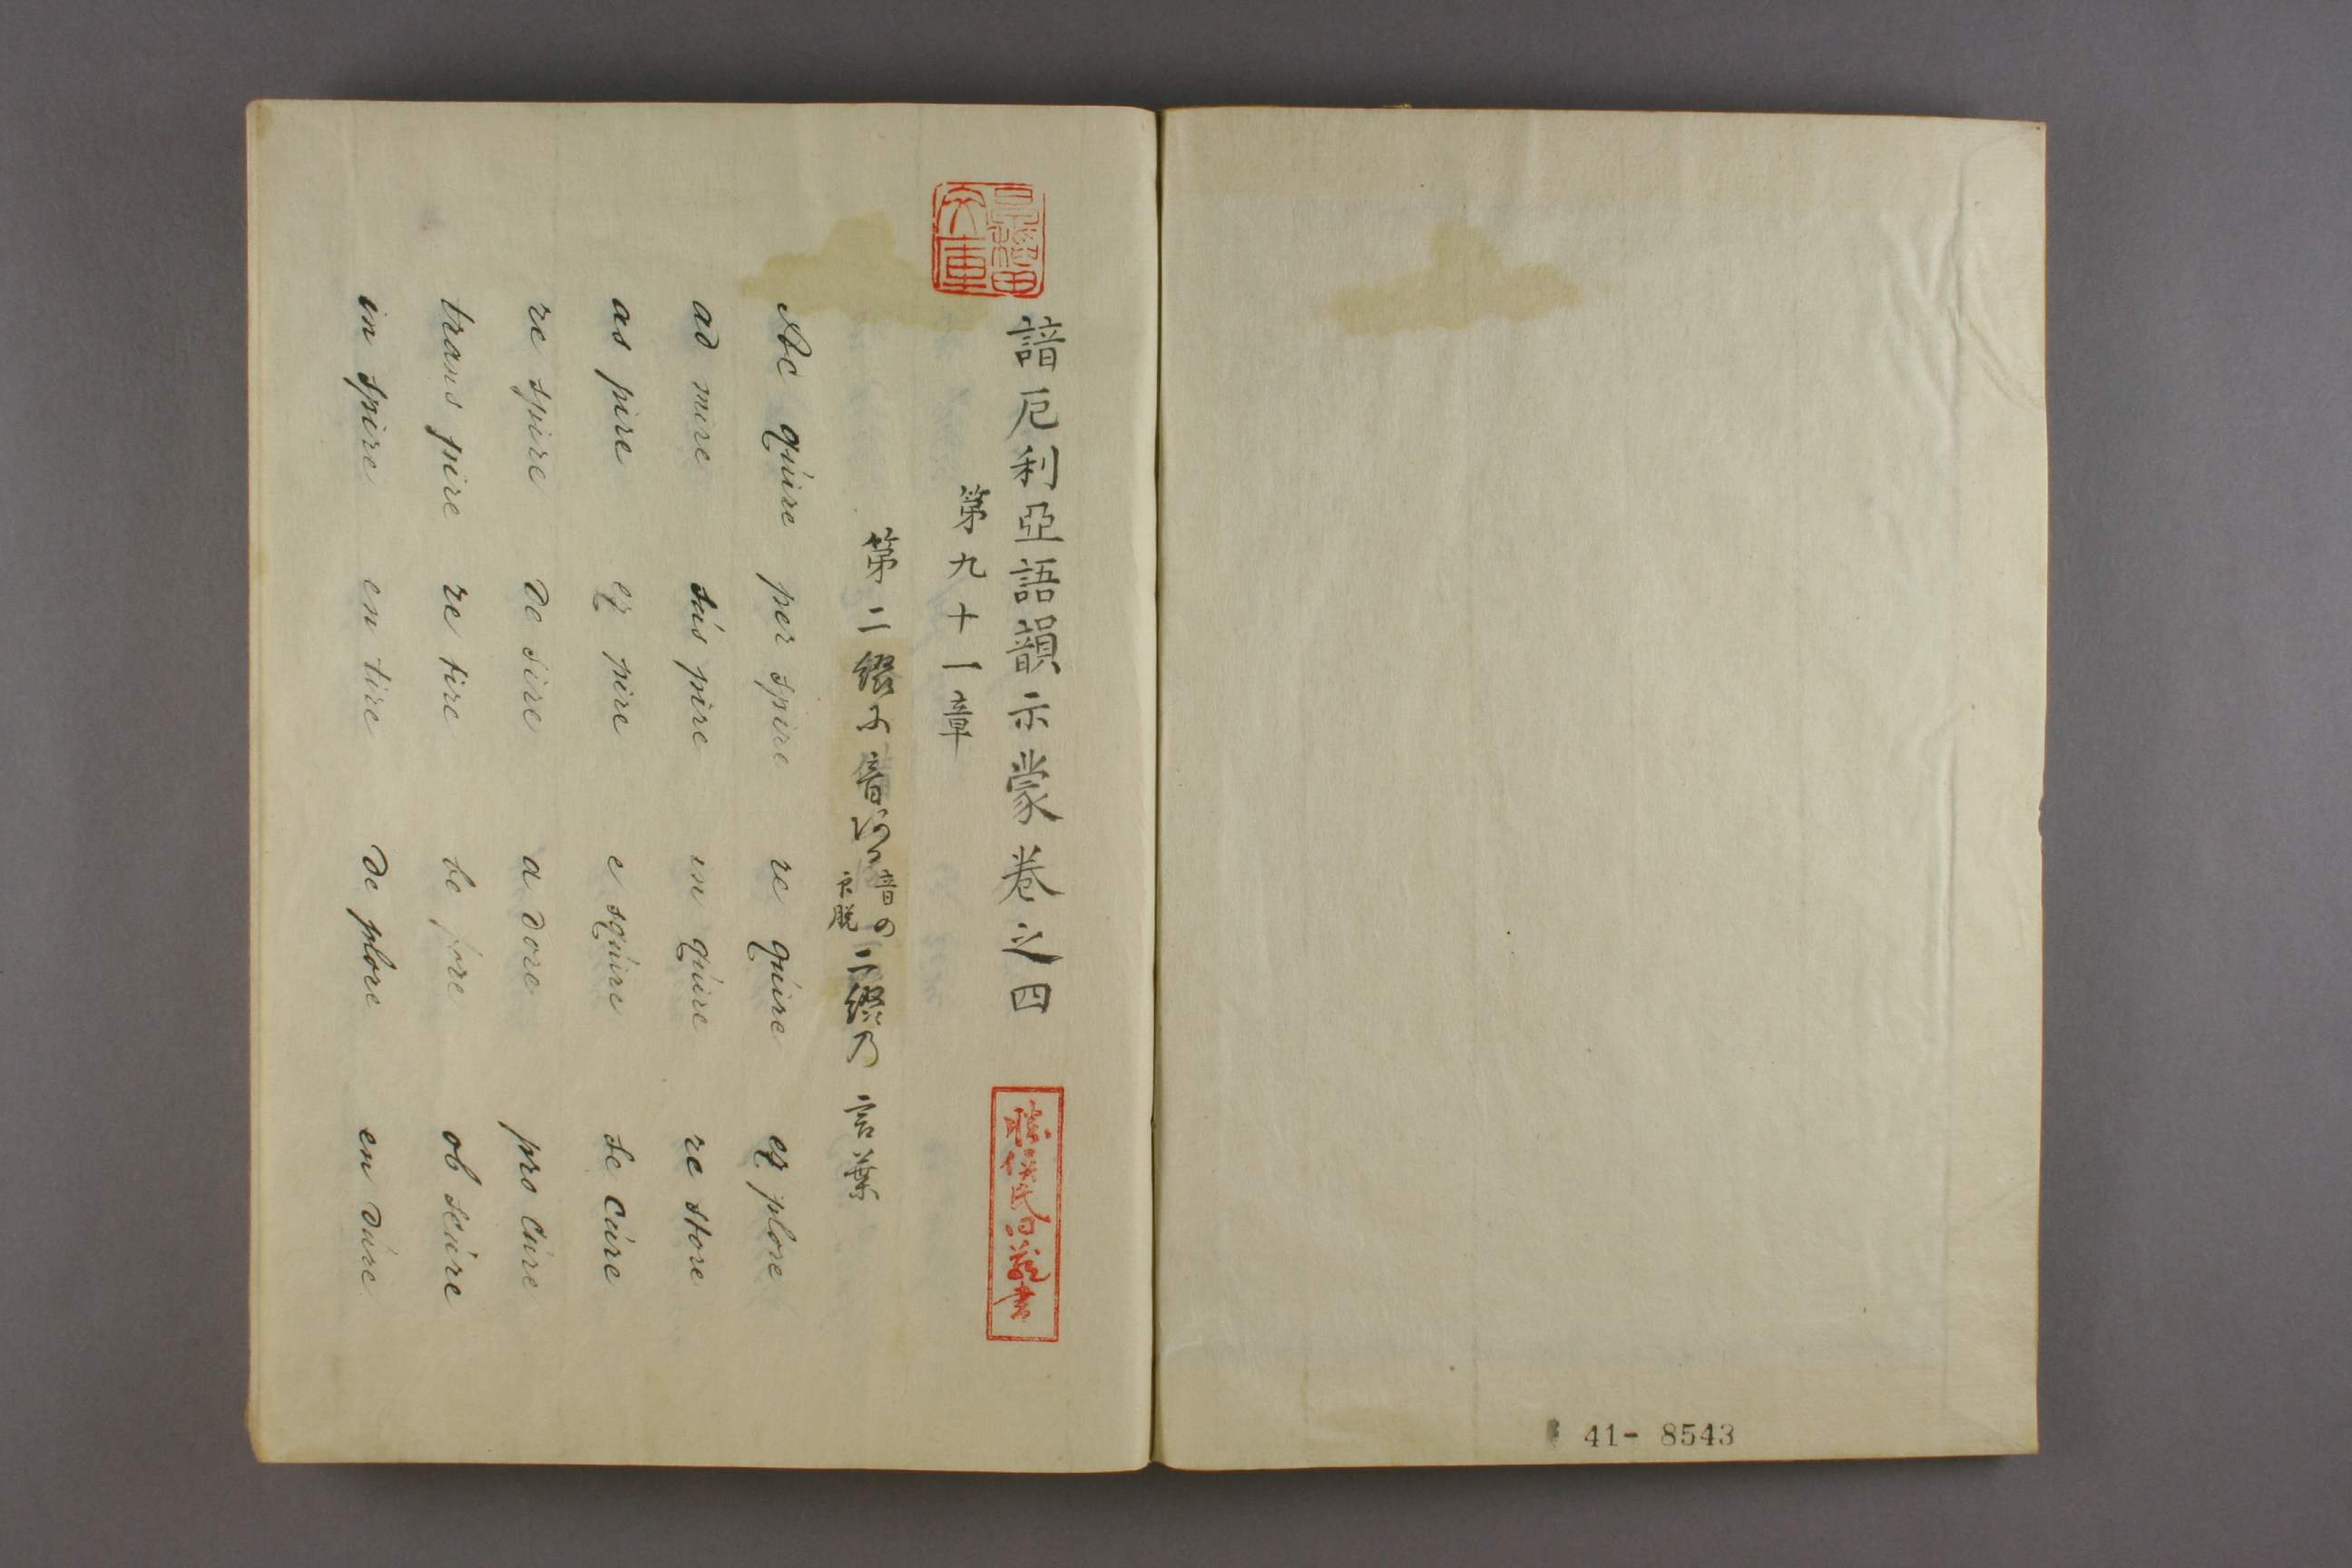 諳厄利亞語韻示蒙卷之四
第九十一章
第二綴 音 音の 二綴乃言葉
Ac quire per spire re quire ex plore
ad mire sus pire in quire re store
as pire ex pire e squire se cure
re spire de sire a dore pro cure
trans pire re tire be fore ob scure
in spire en tire de plore en dure
文庫
41- 8543